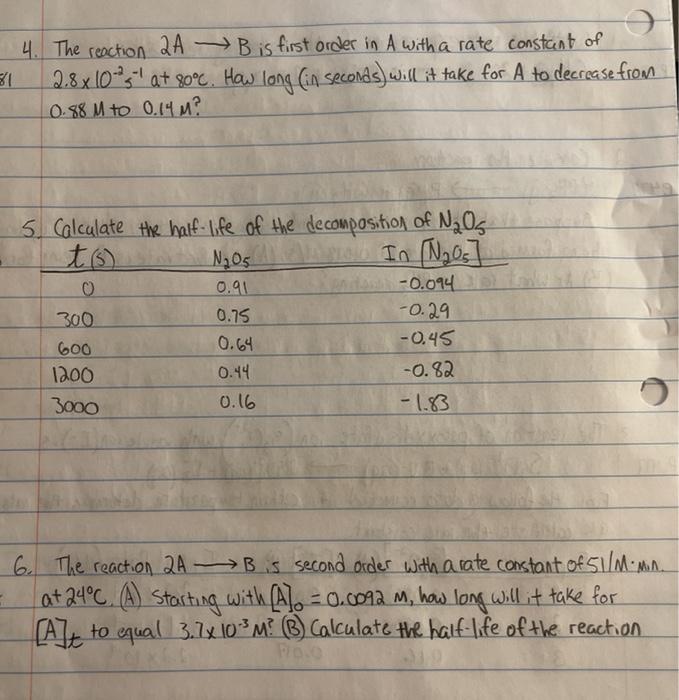 4. The reaction 2A → B is first order in A with a rate constant of
81 2.8 x 10⁻² s⁻¹ at 80°C. How long (in seconds) will it take for A to decrease from
0.88 M to 0.14 M?
5. Calculate the half-life of the decomposition of N₂O₅
t(s) N₂O₅ In [N₂O₅]
0 0.91 -0.094
300 0.75 -0.29
600 0.64 -0.45
1200 0.44 -0.82
3000 0.16 -1.83
6. The reaction 2A → B is second order with a rate constant of 51/M·min.
at 24°C. (A) Starting with [A]₀ = 0.0092 M, how long will it take for
[A]t to equal 3.7 x 10⁻³ M? (B) Calculate the half-life of the reaction